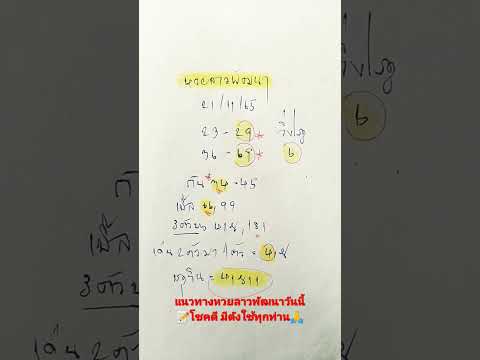 หวยลาวพัฒนา
21/11/65
23-29*
36-69*
วิ่งรูด
6
กัน *74-45
เบิ้ล 66,99
3ตัวบน
เด่น 2ตัวมา 1ตัว =
แนวทางหวยลาวพัฒนาวันนี้
📝โชคดี มีตังใช้ทุกท่าน🙏